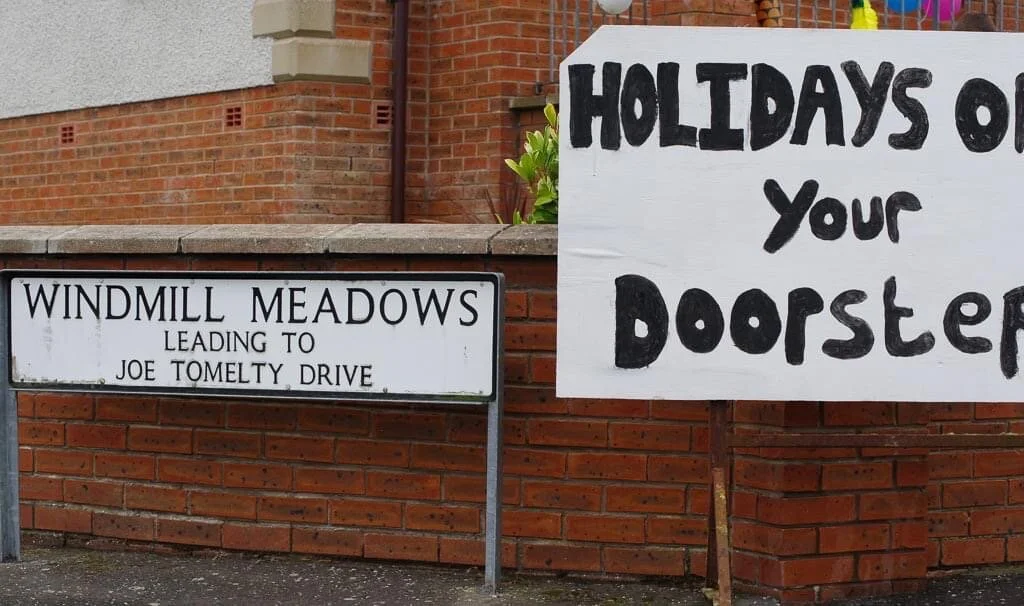 WINDMILL MEADOWS
LEADING TO
JOE TOMELTY DRIVE
HOLIDAYS
Your
Doorstep